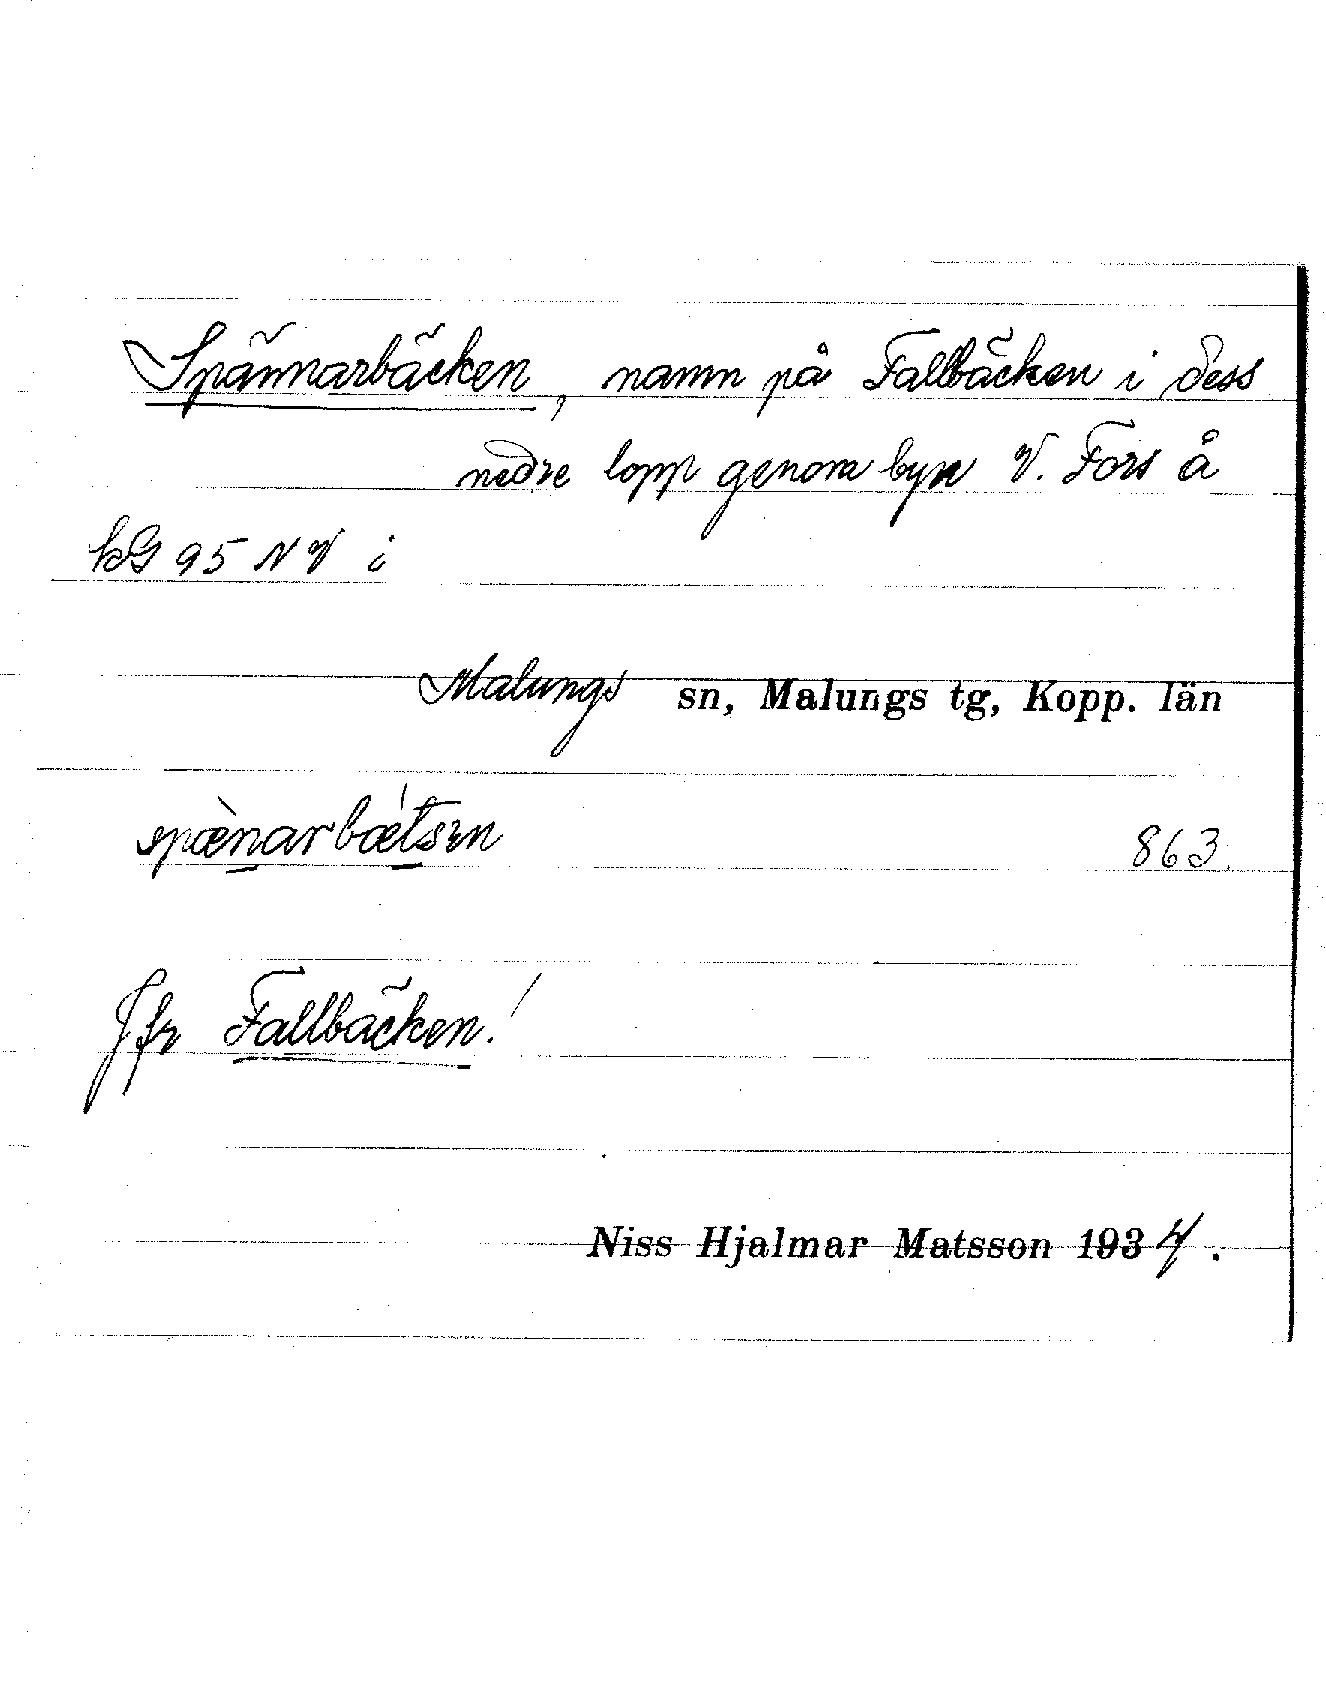 Spännarbäcken, namn på Fallbäcken i dess
nedre lopp genom byn V. Fors å
kG 95 NV i
Malungs sn, Malungs tg, Kopp. län
spæ̀narbǽtsɛn 863.
Jfr Fallbäcken!
Niss Hjalmar Matsson 1934.